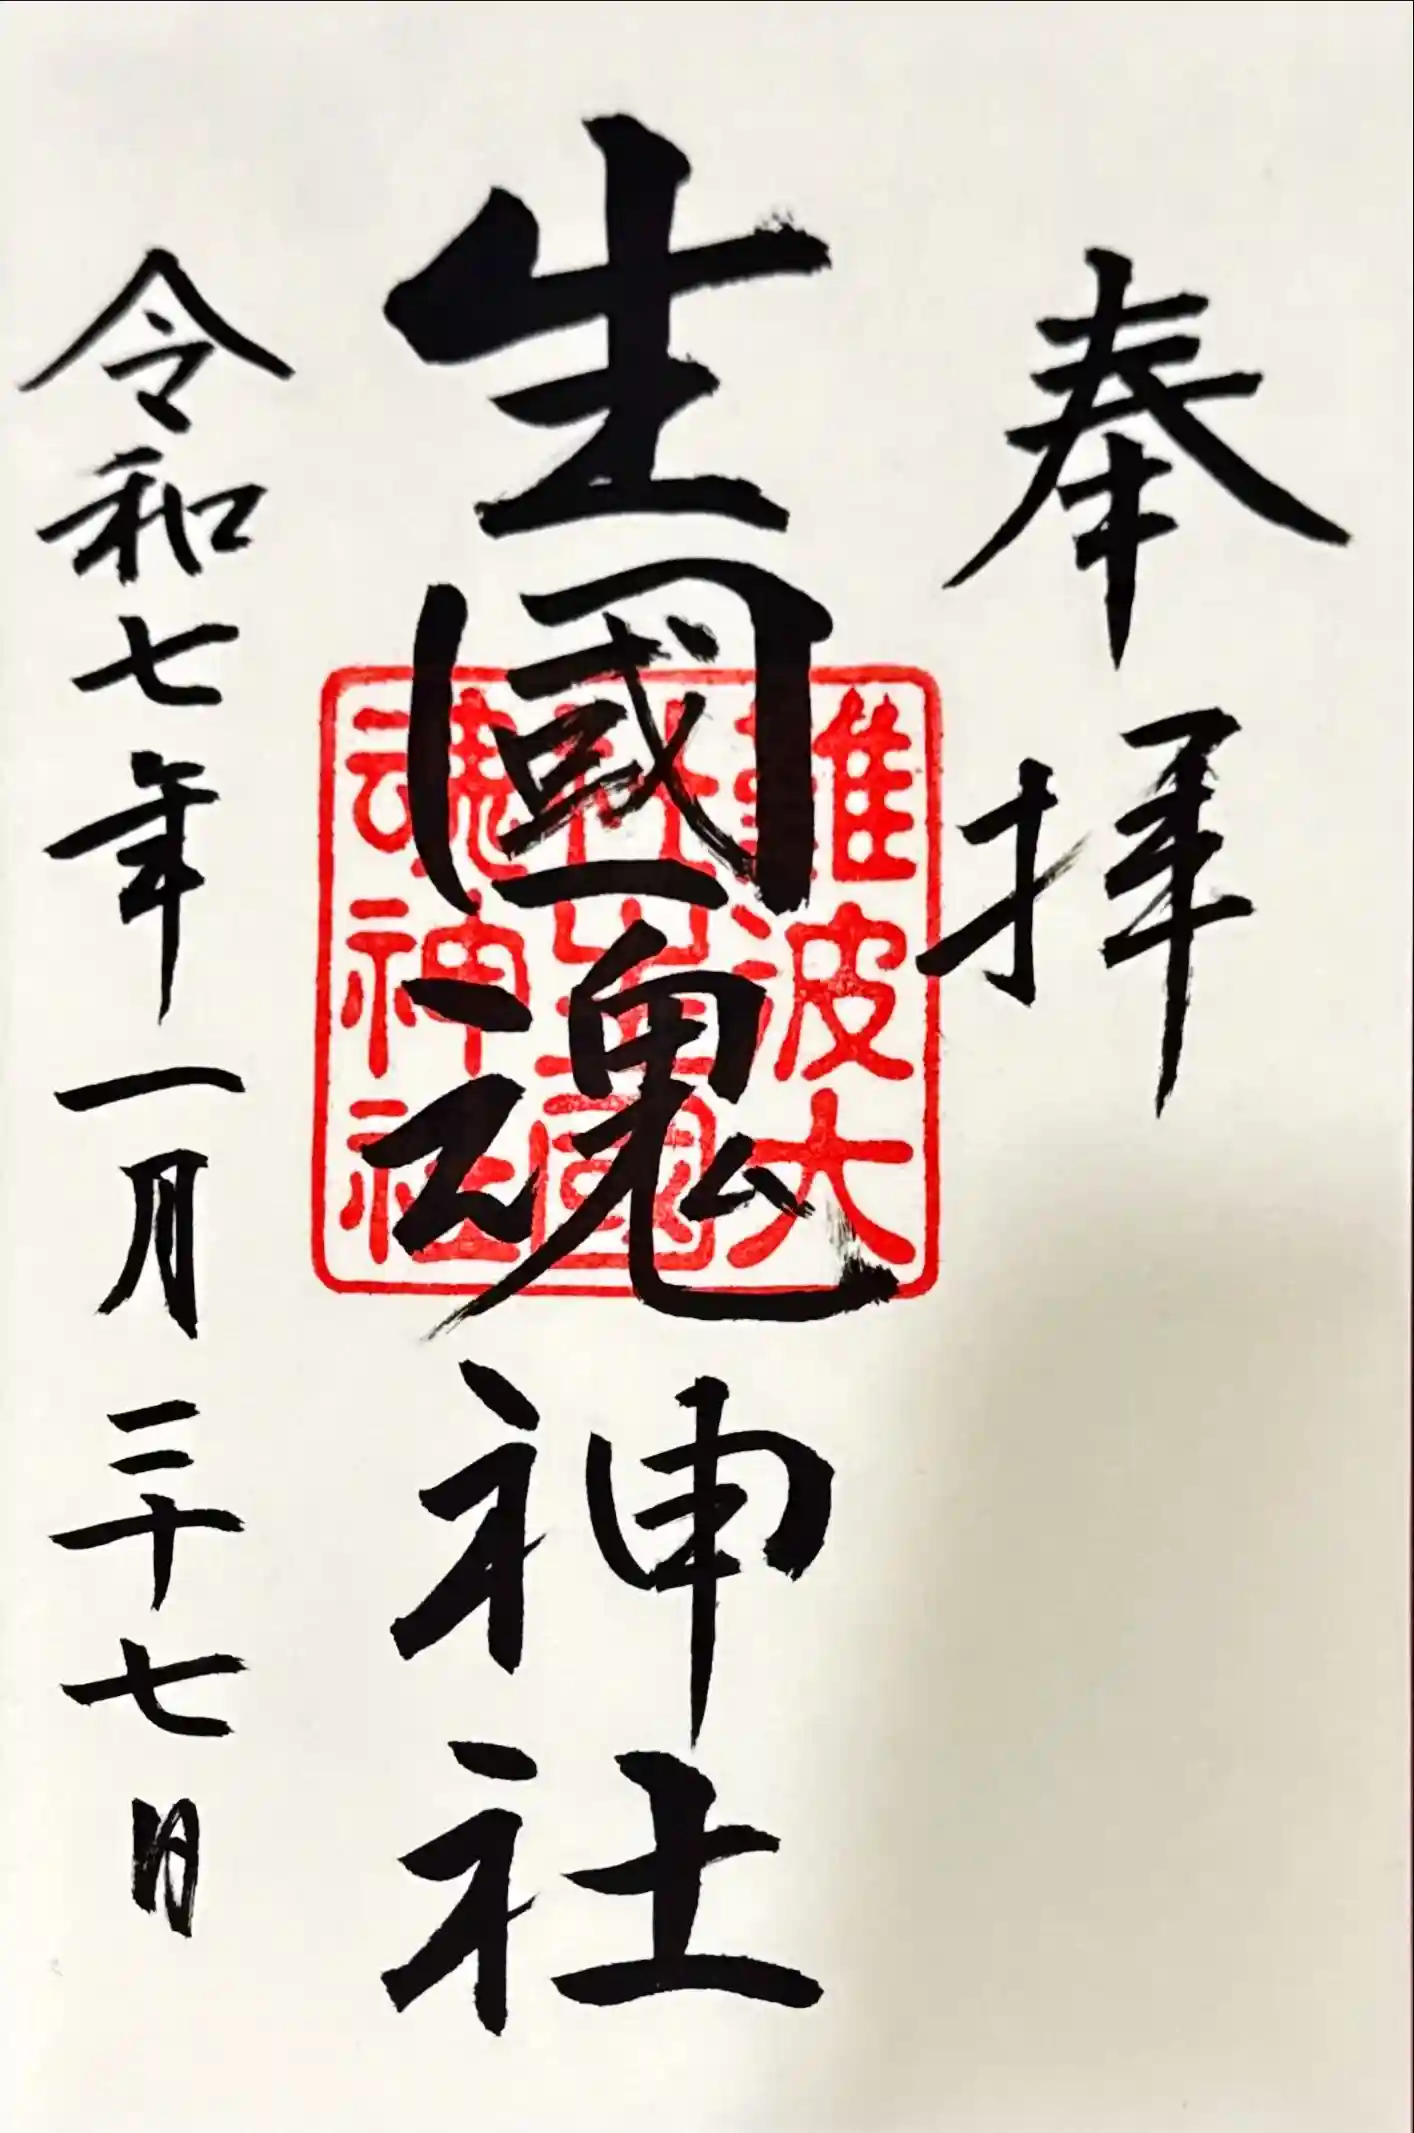 奉拝
生國魂神社
難波大
社生國
魂神社
令和七年一月二十七日